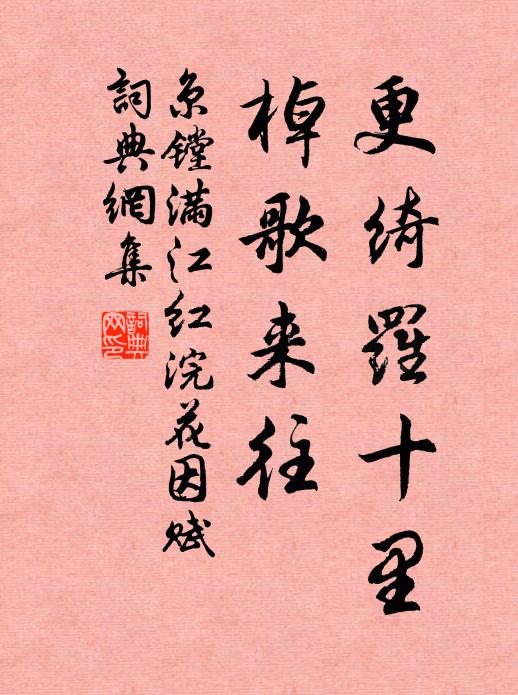 更绮羅十里
棹歌来往
京鏜满江红浣花因赋
詞典網集
詞典網印